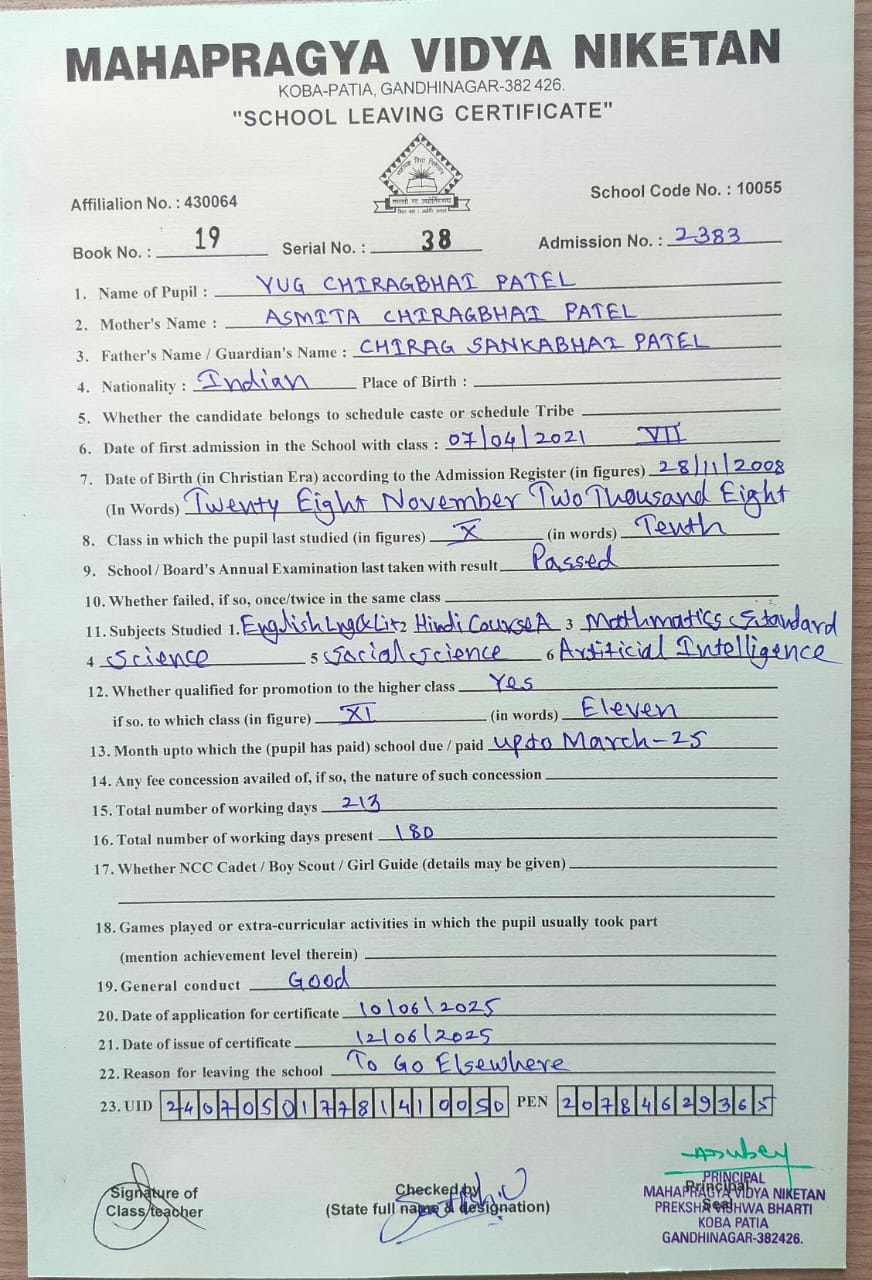 MAHAPRAGYA VIDYA NIKETAN
KOBA-PATIA, GANDHINAGAR-382 426.
"SCHOOL LEAVING CERTIFICATE"
Affilialion No. : 430064
School Code No. : 10055
Book No. : 19 Serial No. : 38 Admission No. : 2383
1. Name of Pupil : YUG CHIRAGBHAI PATEL
2. Mother's Name : ASMITA CHIRAGBHAI PATEL
3. Father's Name / Guardian's Name : CHIRAG SANKABHAI PATEL
4. Nationality : Indian Place of Birth :
5. Whether the candidate belongs to schedule caste or schedule Tribe
6. Date of first admission in the School with class : 07/04/2021 VII
7. Date of Birth (in Christian Era) according to the Admission Register (in figures) 28/11/2008
(In Words) Twenty Eight November Two Thousand Eight
8. Class in which the pupil last studied (in figures) X (in words) Tenth
9. School / Board's Annual Examination last taken with result Passed
10. Whether failed, if so, once/twice in the same class
11. Subjects Studied 1. English Lng & Lit 2 Hindi Course A 3 Mathmatics Standard
4 Science 5 Social Science 6 Artificial Intelligence
12. Whether qualified for promotion to the higher class Yes
if so. to which class (in figure) XI (in words) Eleven
13. Month upto which the (pupil has paid) school due / paid upto March-25
14. Any fee concession availed of, if so, the nature of such concession
15. Total number of working days 213
16. Total number of working days present 180
17. Whether NCC Cadet / Boy Scout / Girl Guide (details may be given)
18. Games played or extra-curricular activities in which the pupil usually took part
(mention achievement level therein)
19. General conduct Good
20. Date of application for certificate 10/06/2025
21. Date of issue of certificate 12/06/2025
22. Reason for leaving the school To Go Elsewhere
23. UID 240705017781410050 PEN 20784629365
Signature of
Class teacher
Checked by
(State full name & designation)
Principal
Seal
PRINCIPAL
MAHAPRAGYA VIDYA NIKETAN
PREKSHA VISHWA BHARTI
KOBA PATIA
GANDHINAGAR-382426.